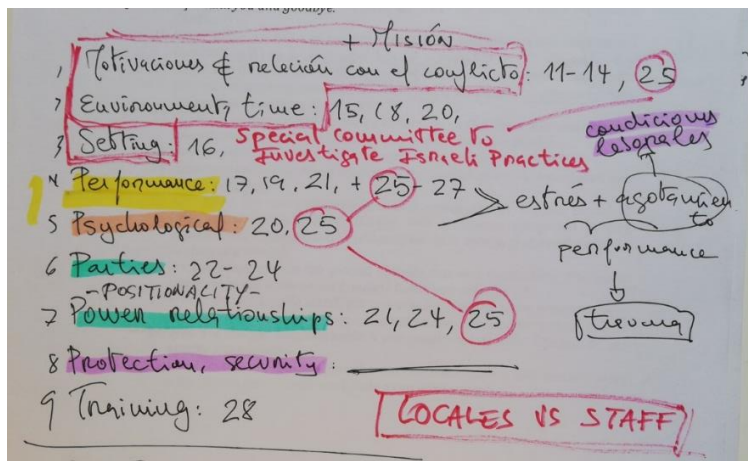 you and goodbye.
+ MISIÓN
1 Motivaciones & relación con el conflicto: 11-14, 25
2 Environment, time: 15, 18, 20,
3 Setting: 16, Special committee to
Investigate Israeli Practices
condiciones
laborales
4 Performance: 17, 19, 21, + 25-27
> estrés + agotamien
to
5 Psychological: 20, 25
performance
6 Parties: 22-24
-POSITIONALITY-
trauma
7 Power relationships: 21, 24, 25
8 Protection, security:
9 Training: 28
LOCALES VS STAFF